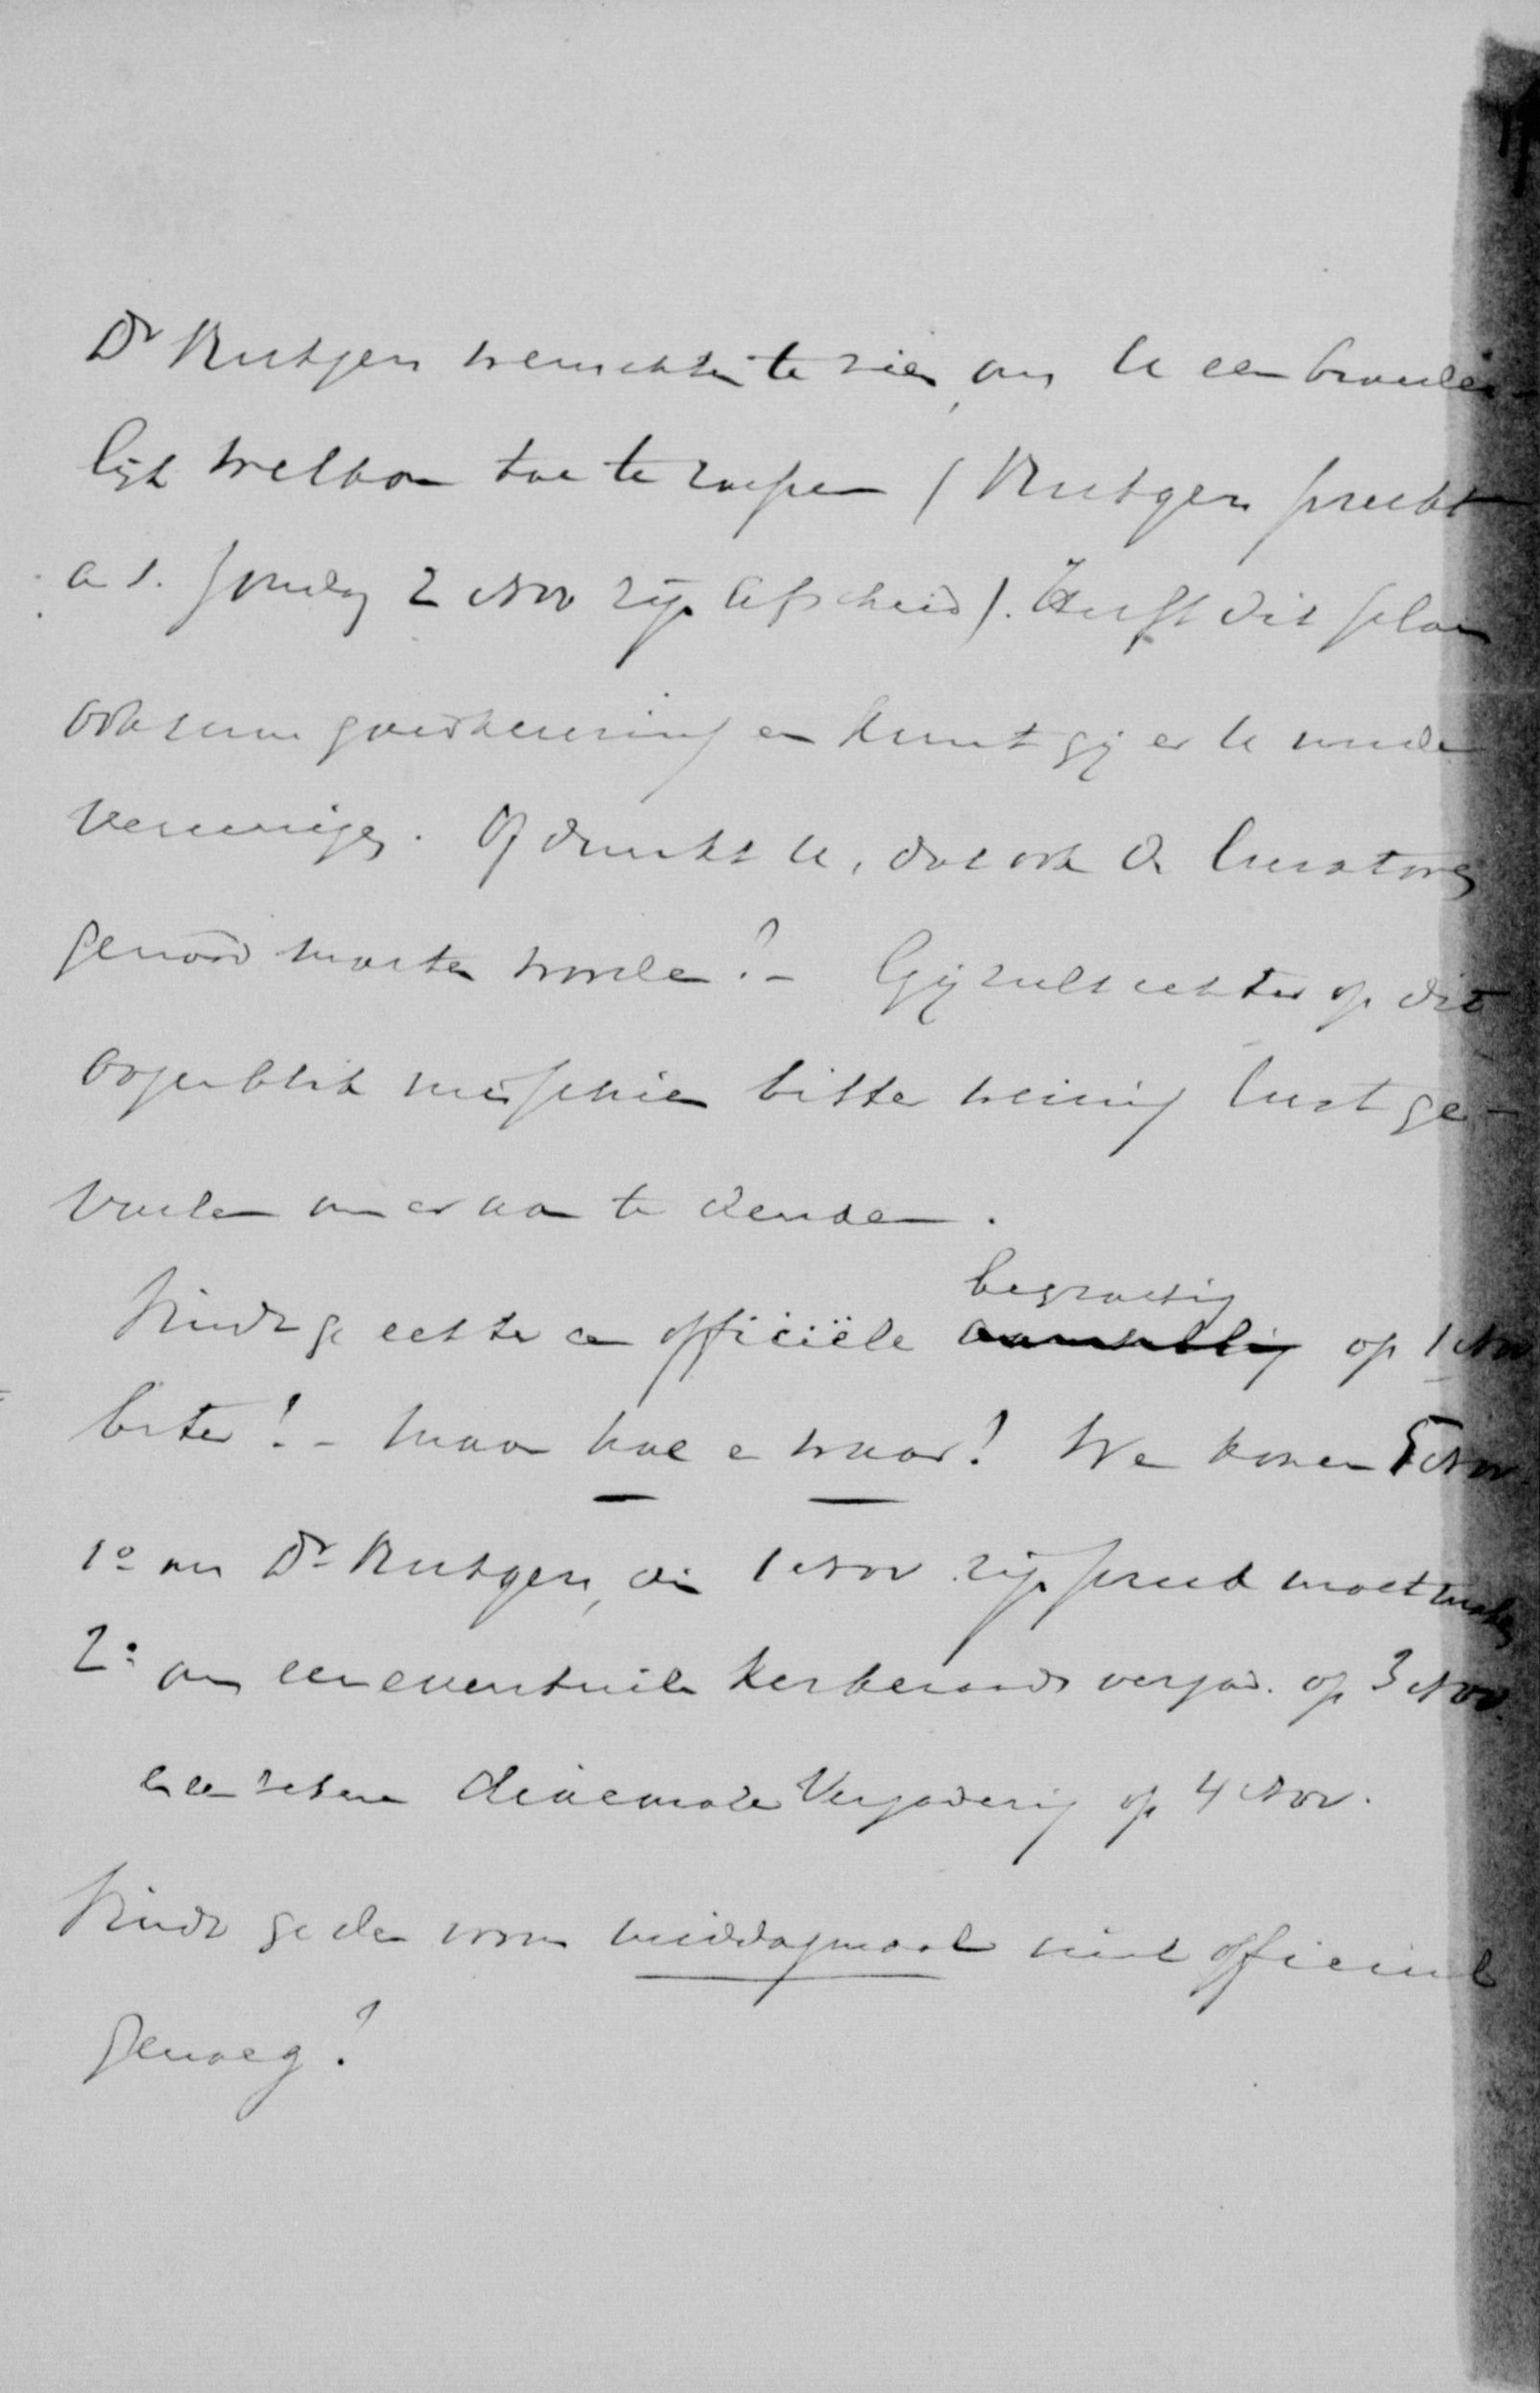 Dr Rutgers wenschten te zien, om U een broeder-
lijk welkom toe te roepen (Rutgers preekt
a s. Zondag 2 Nov zijn afscheid). Heeft dit plan
ook uwe goedkeuring en kunt gij er U mede
vereenigen. Of dunkt U, dat ook de Curatoren
genood moeten worden? - Gij zult echter op dit
oogenblik misschien bitter weinig lust ge-
voelen om er aan te denken.
Vindt ge echter een officiële begroeting op 1 Nov
beter? - maar hoe en waar? We kozen 5 Nov
1o om Dr Rutgers, die 1 Nov zijn preek moet maken
2o om een eventuele kerkeraads vergad. op 3 Nov.
en een zekere Vergadering op 4 Nov.
Vindt ge den vorm middagmaal niet officieel
genoeg?